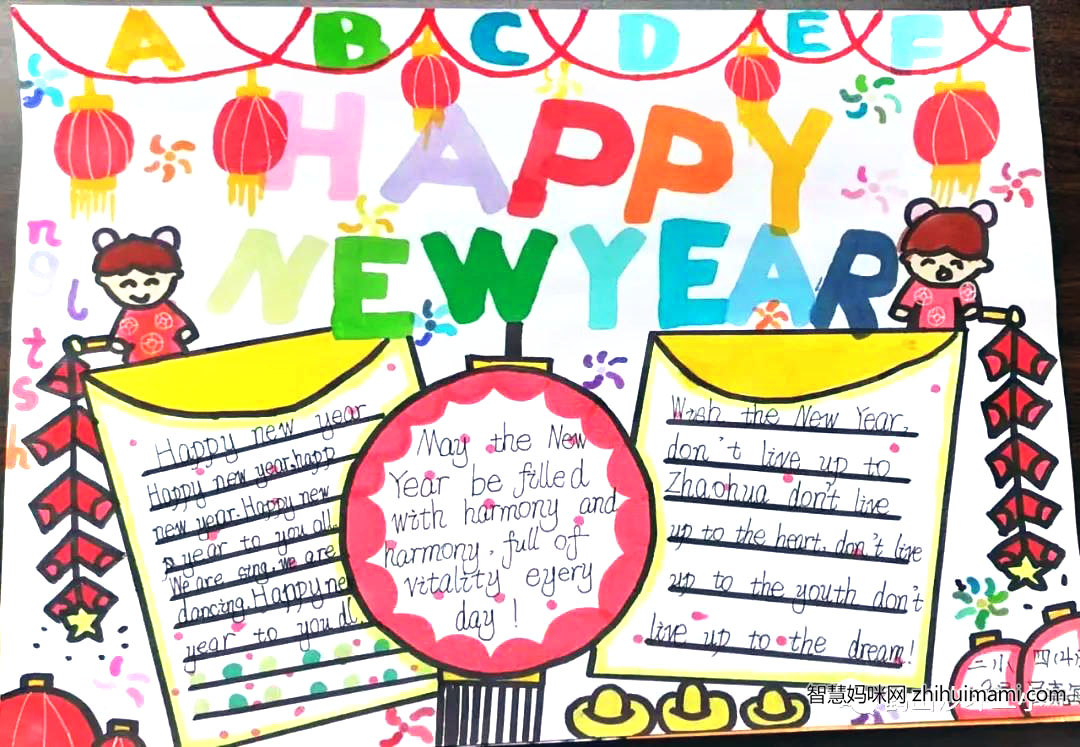 A B C D E F
HAPPY
NEW YEAR
n
g
l
t
s
h
Happy new year
Happy new year.happ
new year.Happy new
year to you all.
We are sing, we are
dancing.Happy new
year to you al.
May the New
Year be filled
with harmony and
harmony, full of
vitality eyery
day!
Wish the New Year,
don't live up to
Zhaohua don't live
up to the heart, don't live
up to the youth don't
live up to the dream!
二小
四(4)
智慧妈咪网 zhihuimami.com